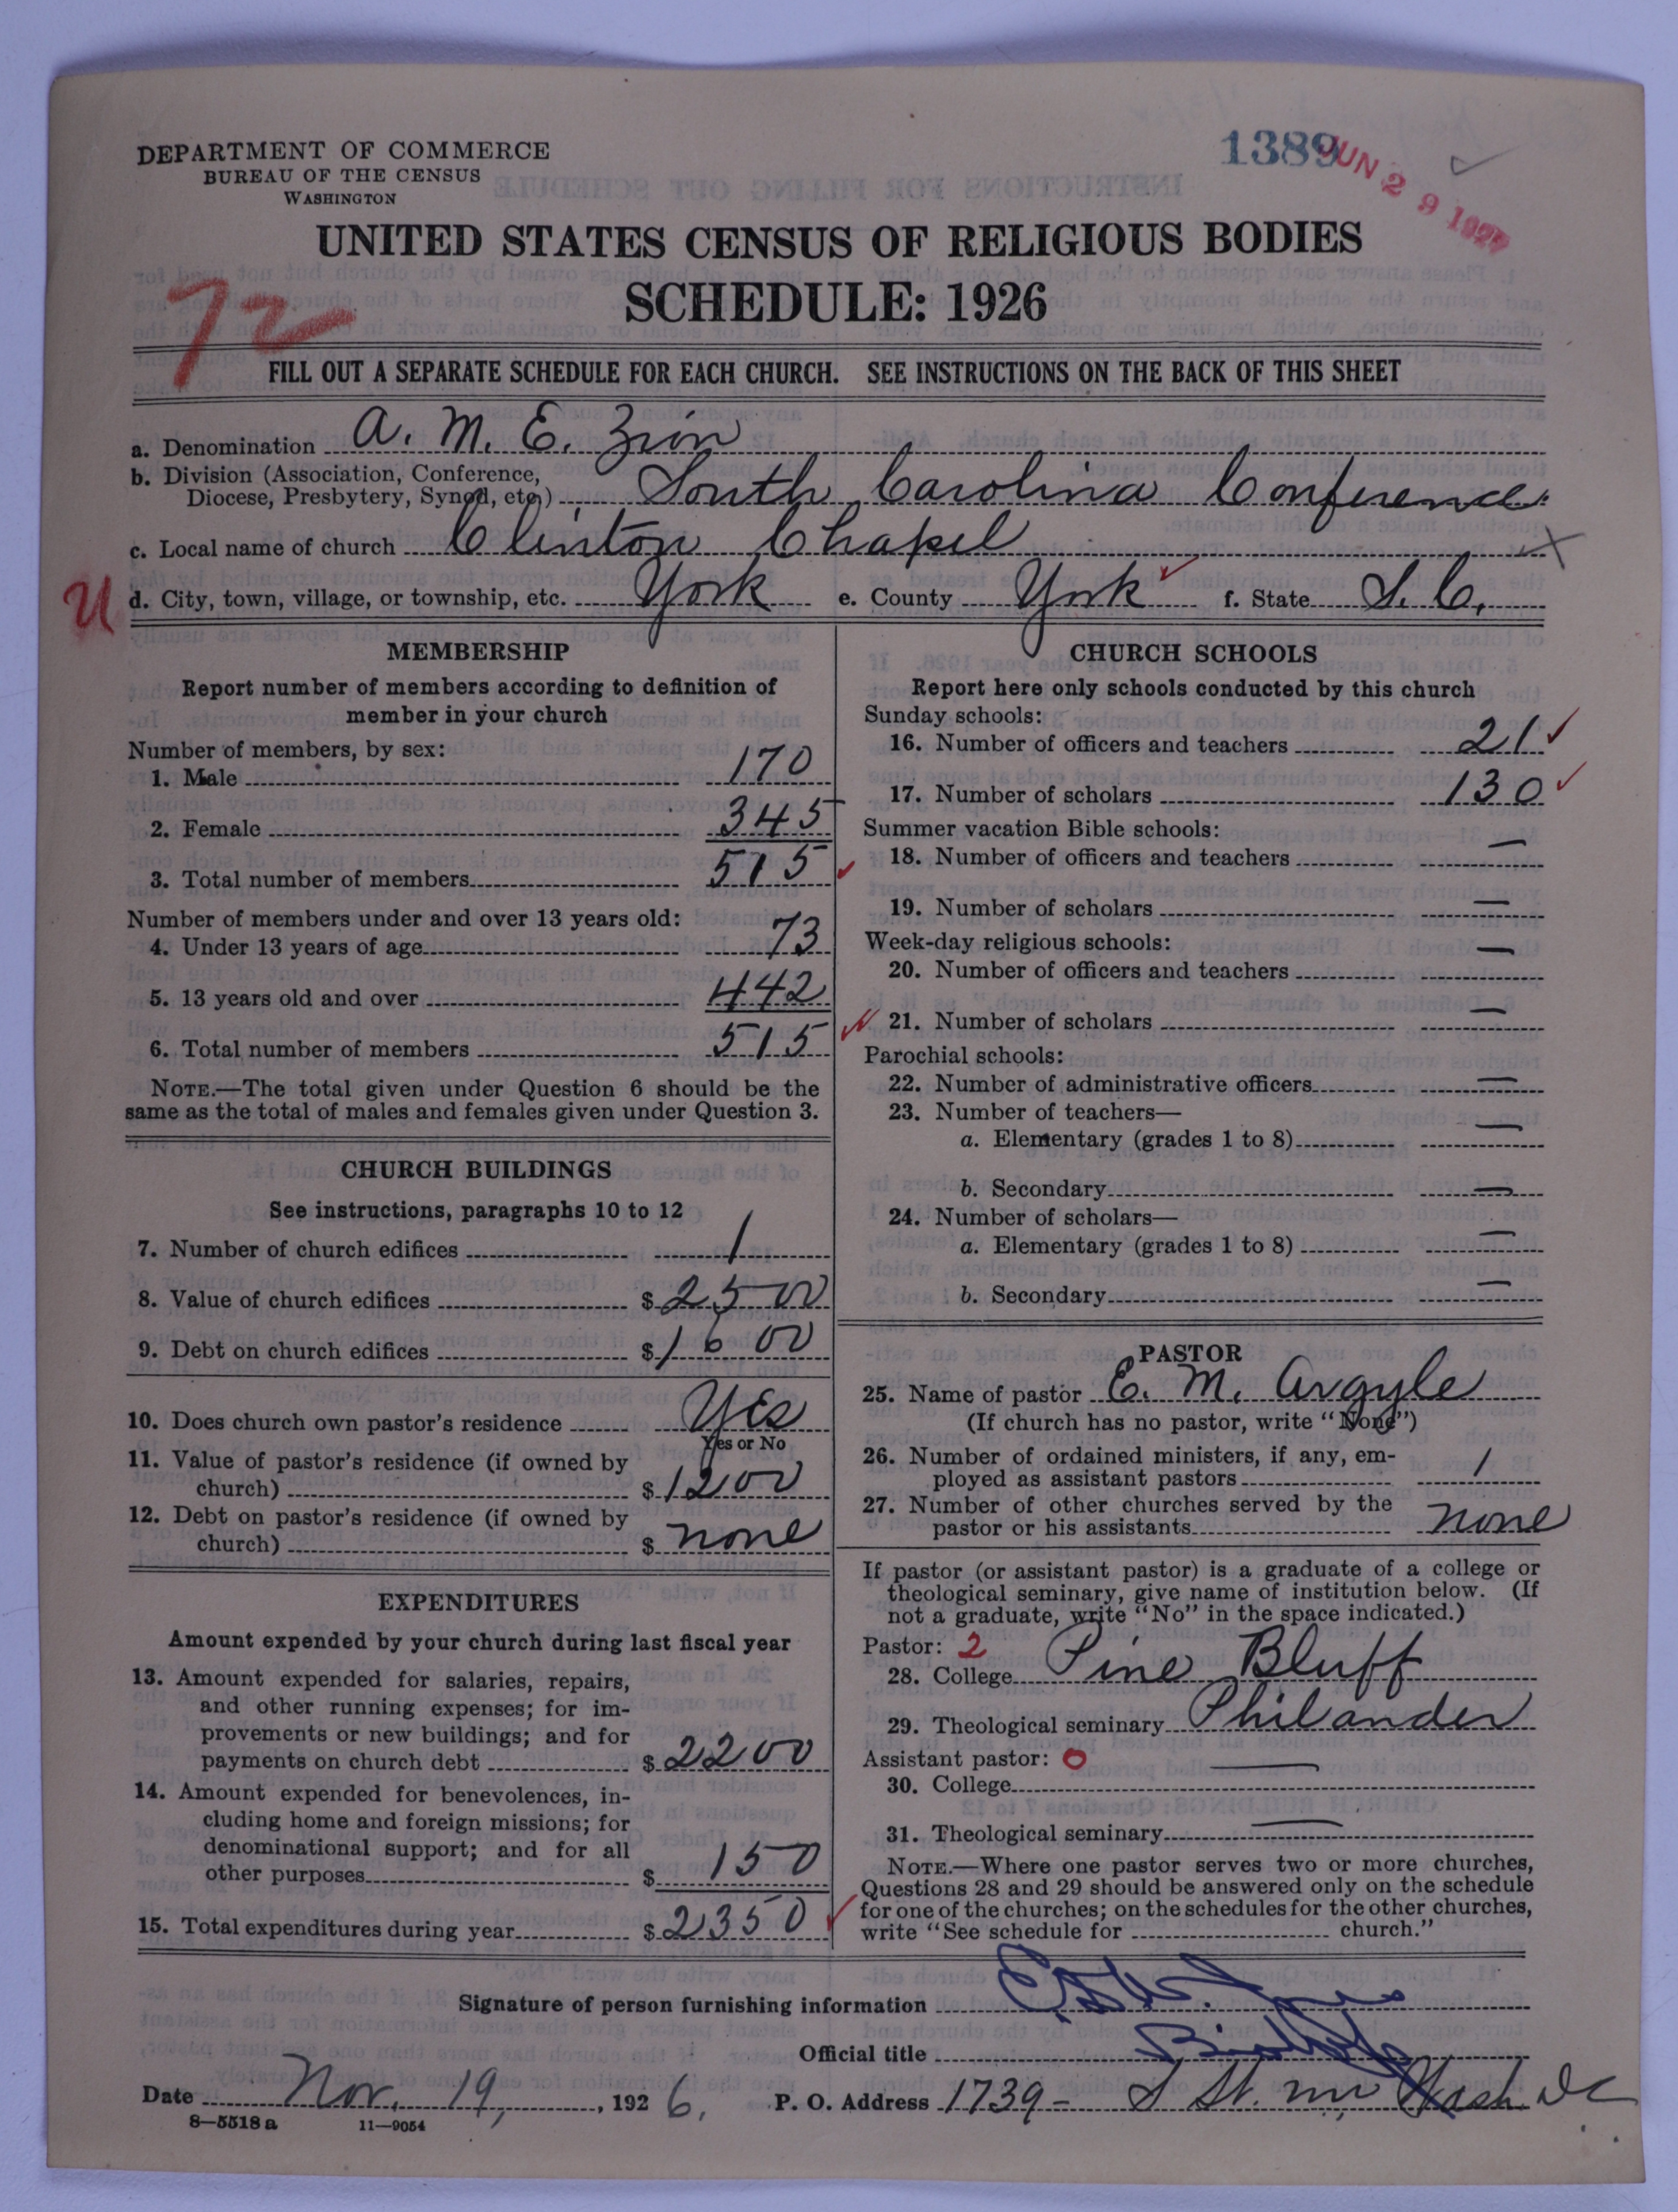 1389
JUN 29 1927
DEPARTMENT OF COMMERCE
BUREAU OF THE CENSUS
WASHINGTON
UNITED STATES CENSUS OF RELIGIOUS BODIES
SCHEDULE: 1926
72
FILL OUT A SEPARATE SCHEDULE FOR EACH CHURCH. SEE INSTRUCTIONS ON THE BACK OF THIS SHEET
a. Denomination A. M. E. Zion
b. Division (Association, Conference,
Diocese, Presbytery, Synod, etc.) South Carolina Conference
c. Local name of church Clinton Chapel X
U d. City, town, village, or township, etc. York e. County York f. State S. C.
MEMBERSHIP
Report number of members according to definition of
member in your church
Number of members, by sex:
1. Male 170
2. Female 345
3. Total number of members 515
Number of members under and over 13 years old:
4. Under 13 years of age 73
5. 13 years old and over 442
6. Total number of members 515
NOTE.—The total given under Question 6 should be the
same as the total of males and females given under Question 3.
CHURCH BUILDINGS
See instructions, paragraphs 10 to 12
7. Number of church edifices 1
8. Value of church edifices $ 2500
9. Debt on church edifices $ 1600
10. Does church own pastor's residence Yes
Yes or No
11. Value of pastor's residence (if owned by
church) $ 1200
12. Debt on pastor's residence (if owned by
church) $ none
EXPENDITURES
Amount expended by your church during last fiscal year
13. Amount expended for salaries, repairs,
and other running expenses; for im-
provements or new buildings; and for
payments on church debt $ 2200
14. Amount expended for benevolences, in-
cluding home and foreign missions; for
denominational support; and for all
other purposes $ 150
15. Total expenditures during year $ 2350
CHURCH SCHOOLS
Report here only schools conducted by this church
Sunday schools:
16. Number of officers and teachers 21
17. Number of scholars 130
Summer vacation Bible schools:
18. Number of officers and teachers —
19. Number of scholars —
Week-day religious schools:
20. Number of officers and teachers —
21. Number of scholars —
Parochial schools:
22. Number of administrative officers —
23. Number of teachers—
a. Elementary (grades 1 to 8) —
b. Secondary —
24. Number of scholars—
a. Elementary (grades 1 to 8) —
b. Secondary —
PASTOR
25. Name of pastor E. M. Argyle
(If church has no pastor, write "None")
26. Number of ordained ministers, if any, em-
ployed as assistant pastors 1
27. Number of other churches served by the
pastor or his assistants none
If pastor (or assistant pastor) is a graduate of a college or
theological seminary, give name of institution below. (If
not a graduate, write "No" in the space indicated.)
Pastor: 2
28. College Pine Bluff
29. Theological seminary Philander
Assistant pastor: 0
30. College —
31. Theological seminary —
NOTE.—Where one pastor serves two or more churches,
Questions 28 and 29 should be answered only on the schedule
for one of the churches; on the schedules for the other churches,
write "See schedule for church."
Signature of person furnishing information
Official title Bishop
Date Nov. 19, 1926. P. O. Address 1739 - S St. nw Wash DC
8—5518 a 11—9054